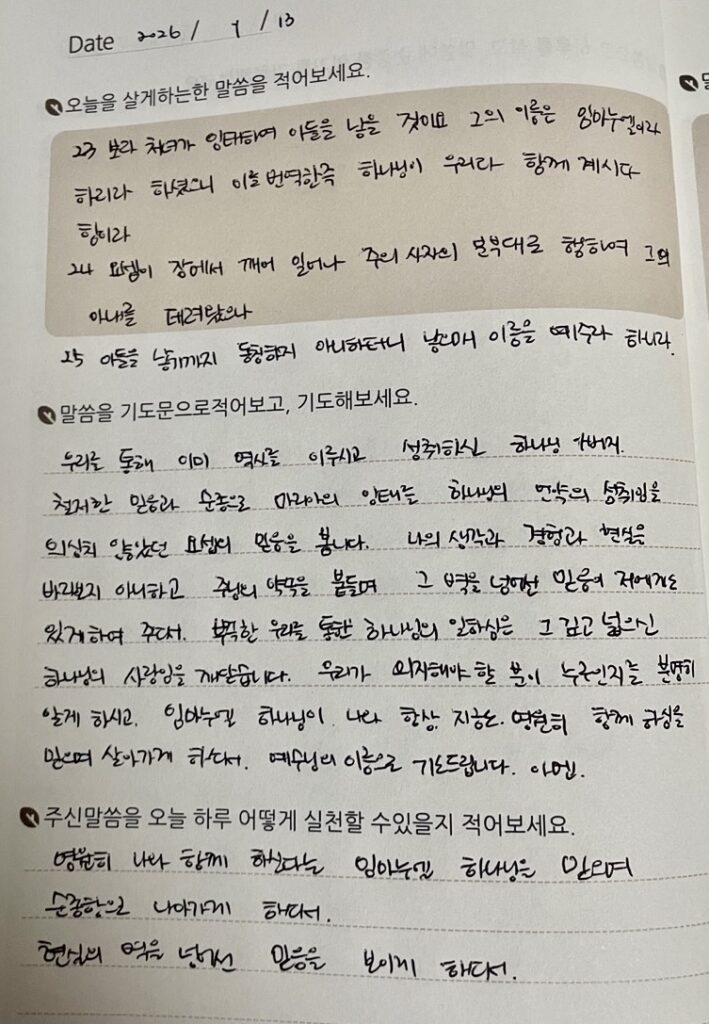 Date 2026 / 1 / 13
오늘을 살게하는한 말씀을 적어보세요.
23 보라 처녀가 잉태하여 아들을 낳을 것이요 그의 이름은 임마누엘이라
하리라 하셨으니 이를 번역한즉 하나님이 우리와 함께 계시다
함이라
24 요셉이 잠에서 깨어 일어나 주의 사자의 분부대로 행하여 그의
아내를 데려왔으나
25 아들을 낳기까지 동침하지 아니하더니 낳으매 이름을 예수라 하니라.
말씀을 기도문으로적어보고, 기도해보세요.
우리를 통해 이미 역사를 이루시고 성취하신 하나님 아버지.
철저한 믿음과 순종으로 마리아의 잉태를 하나님의 언약의 성취임을
의심치 않았던 요셉의 믿음을 봅니다. 나의 생각과 경험과 현실을
바라보지 아니하고 주님의 약속을 붙들며 그 벽을 넘어선 믿음이 저에게도
있게하여 주소서. 부족한 우리를 통한 하나님의 일하심은 그 깊고 넓으신
하나님의 사랑임을 깨닫습니다. 우리가 의지해야 할 분이 누구인지를 분명히
알게 하시고, 임마누엘 하나님이 나와 항상, 지금도, 영원히 함께 하심을
믿으며 살아가게 하소서. 예수님의 이름으로 기도드립니다. 아멘.
주신말씀을 오늘 하루 어떻게 실천할 수있을지 적어보세요.
영원히 나와 함께 하신다는 임마누엘 하나님을 믿으며
순종함으로 나아가게 하소서.
현실의 벽을 넘어선 믿음을 보이게 하소서.